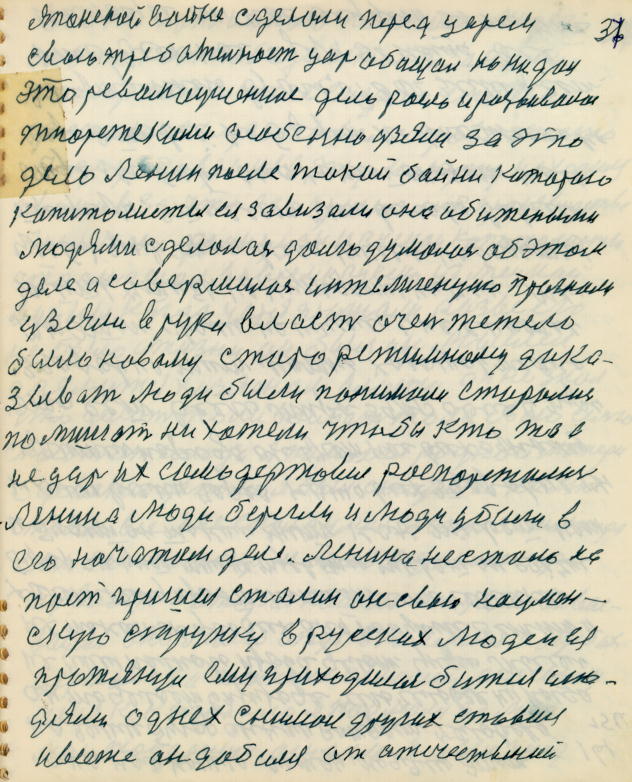 Японской войне сделали перед царем 37
свою требовательност цар обещал но не дал
это революционное дело росло и развивалось
особенно взяли за это
дело Ленин после такой байни которого
капиталисты завязали она обиженыли
людями сделоная долго думоная об этом
деле а совершилоя интелигенцию прогнали
узяли в руки власт очен тежело
было новому старорежимному дака-
зыват люди были понимали старолис
помишат ни хотели чтобы кто то в
недар их самодержовие роспорежалис
Ленина люди берегли и люди убили в
его начатом деле. Ленина нестало на
пост пришел сталин он свою
скую струнку в русских людей
протянул ему приходилоя битися лю-
дями однех снимал других ставил
и всеже он добился от отечественой